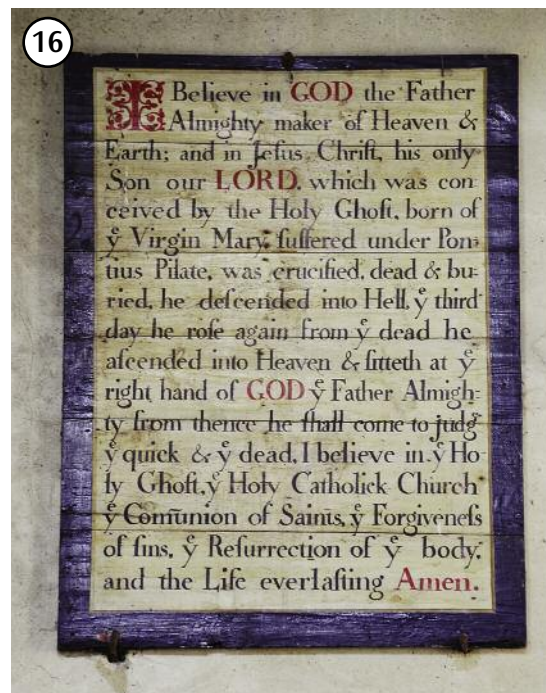 16
I Believe in GOD the Father
Almighty maker of Heaven &
Earth; and in Jeſus Chriſt, his only
Son our LORD, which was con-
ceived by the Holy Ghoſt, born of
yͤ Virgin Mary, ſuffered under Pon-
tius Pilate, was crucified, dead & bu-
ried, he deſcended into Hell, yͤ third
day he roſe again from yͤ dead he
aſcended into Heaven & ſitteth at yͤ
right hand of GOD yͤ Father Almigh-
ty from thence he ſhall come to judg
yͤ quick & yͤ dead, I believe in yͤ Ho-
ly Ghoſt, yͤ Holy Catholick Church
yͤ Com̄union of Saints, yͤ Forgiveneſs
of ſins, yͤ Reſurrection of yͤ body,
and the Life everlaſting Amen.